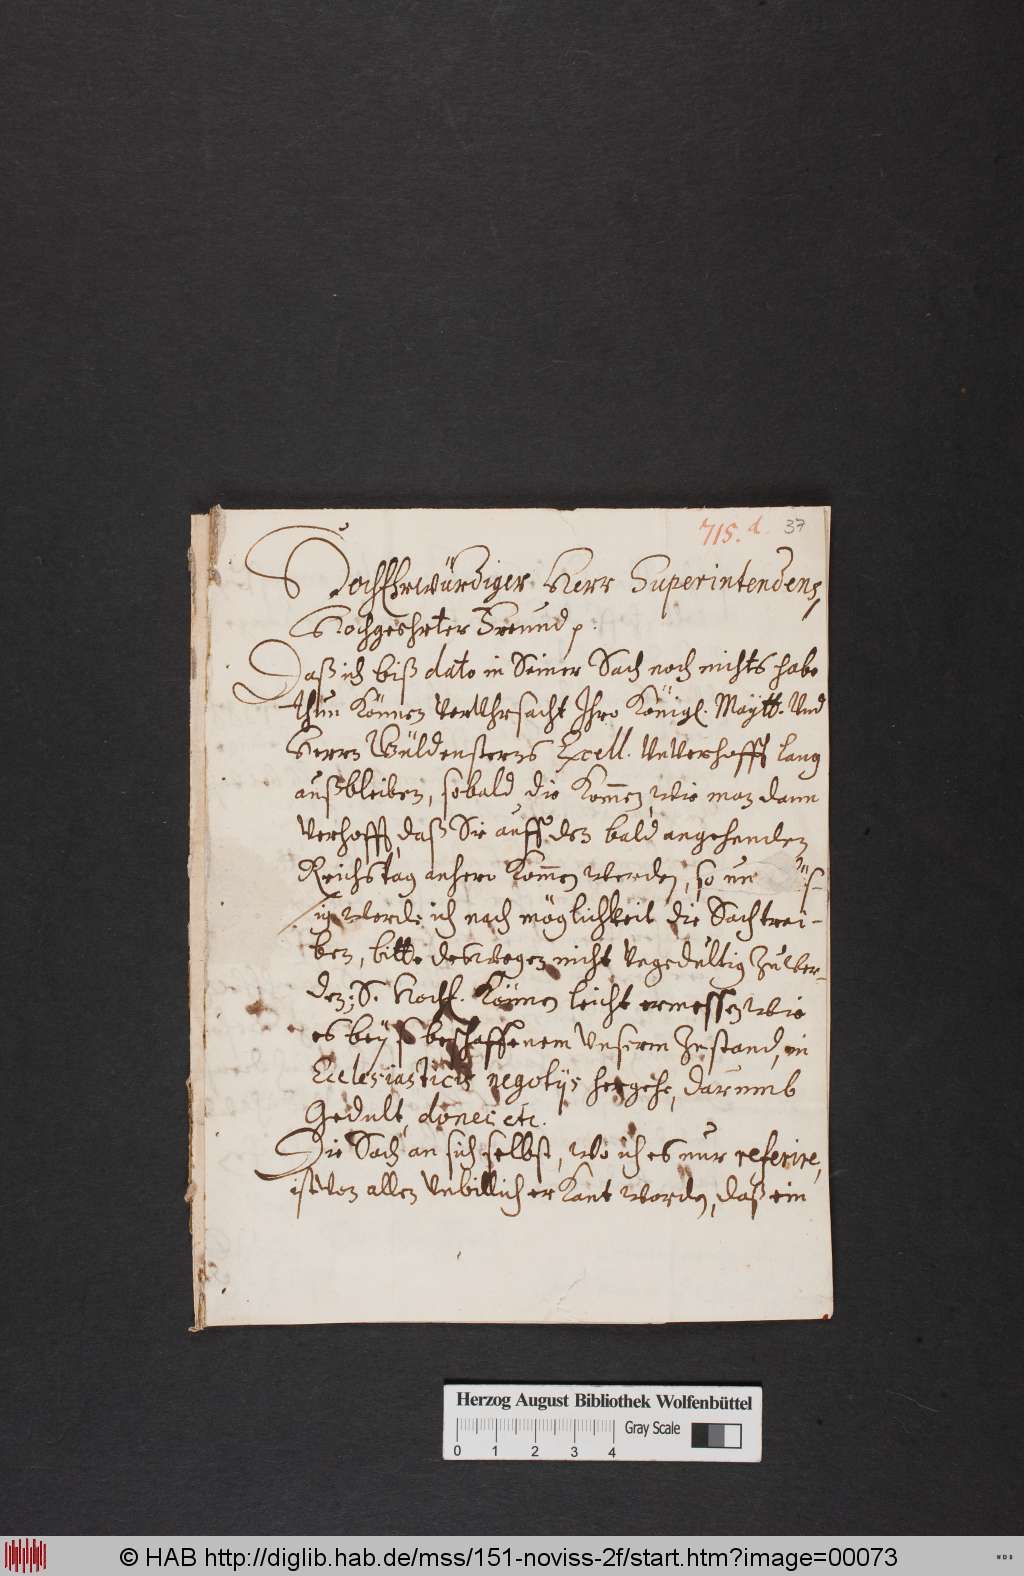 715. d. 37
HochEhrwürdiger Herr Superintendens,
Hochgeehrter Freund p.
Daß ich biß dato in Seiner Sach noch nichts habe
thun Können verVhrsacht Ihro Königl. Maÿtt. Vnd
Herrn Wüldensterns Excell. VnVerhofft lang
außbleiben, sobald die Kommen, wie man dann
Verhofft, daß Sie auff den bald angehenden
Reichstag anhero Kommen werden, so
ig werde ich nach möglichkeit die Sach trei-
ben, bitte deßwegen nicht Vngedultig zu wer-
den; S. HochE. Können leicht ermessen wie
es beÿ so beschaffenem Vnserm Zustand, in
Ecclesiasticis negotijs hergehe, darumb
Gedult, donec etc.
Die Sach an sich selbst, wo ich es nur referire,
ist Von allen Vnbillich erKant worden, daß ein
Herzog August Bibliothek Wolfenbüttel
Gray Scale
0 1 2 3 4
© HAB http://diglib.hab.de/mss/151-noviss-2f/start.htm?image=00073